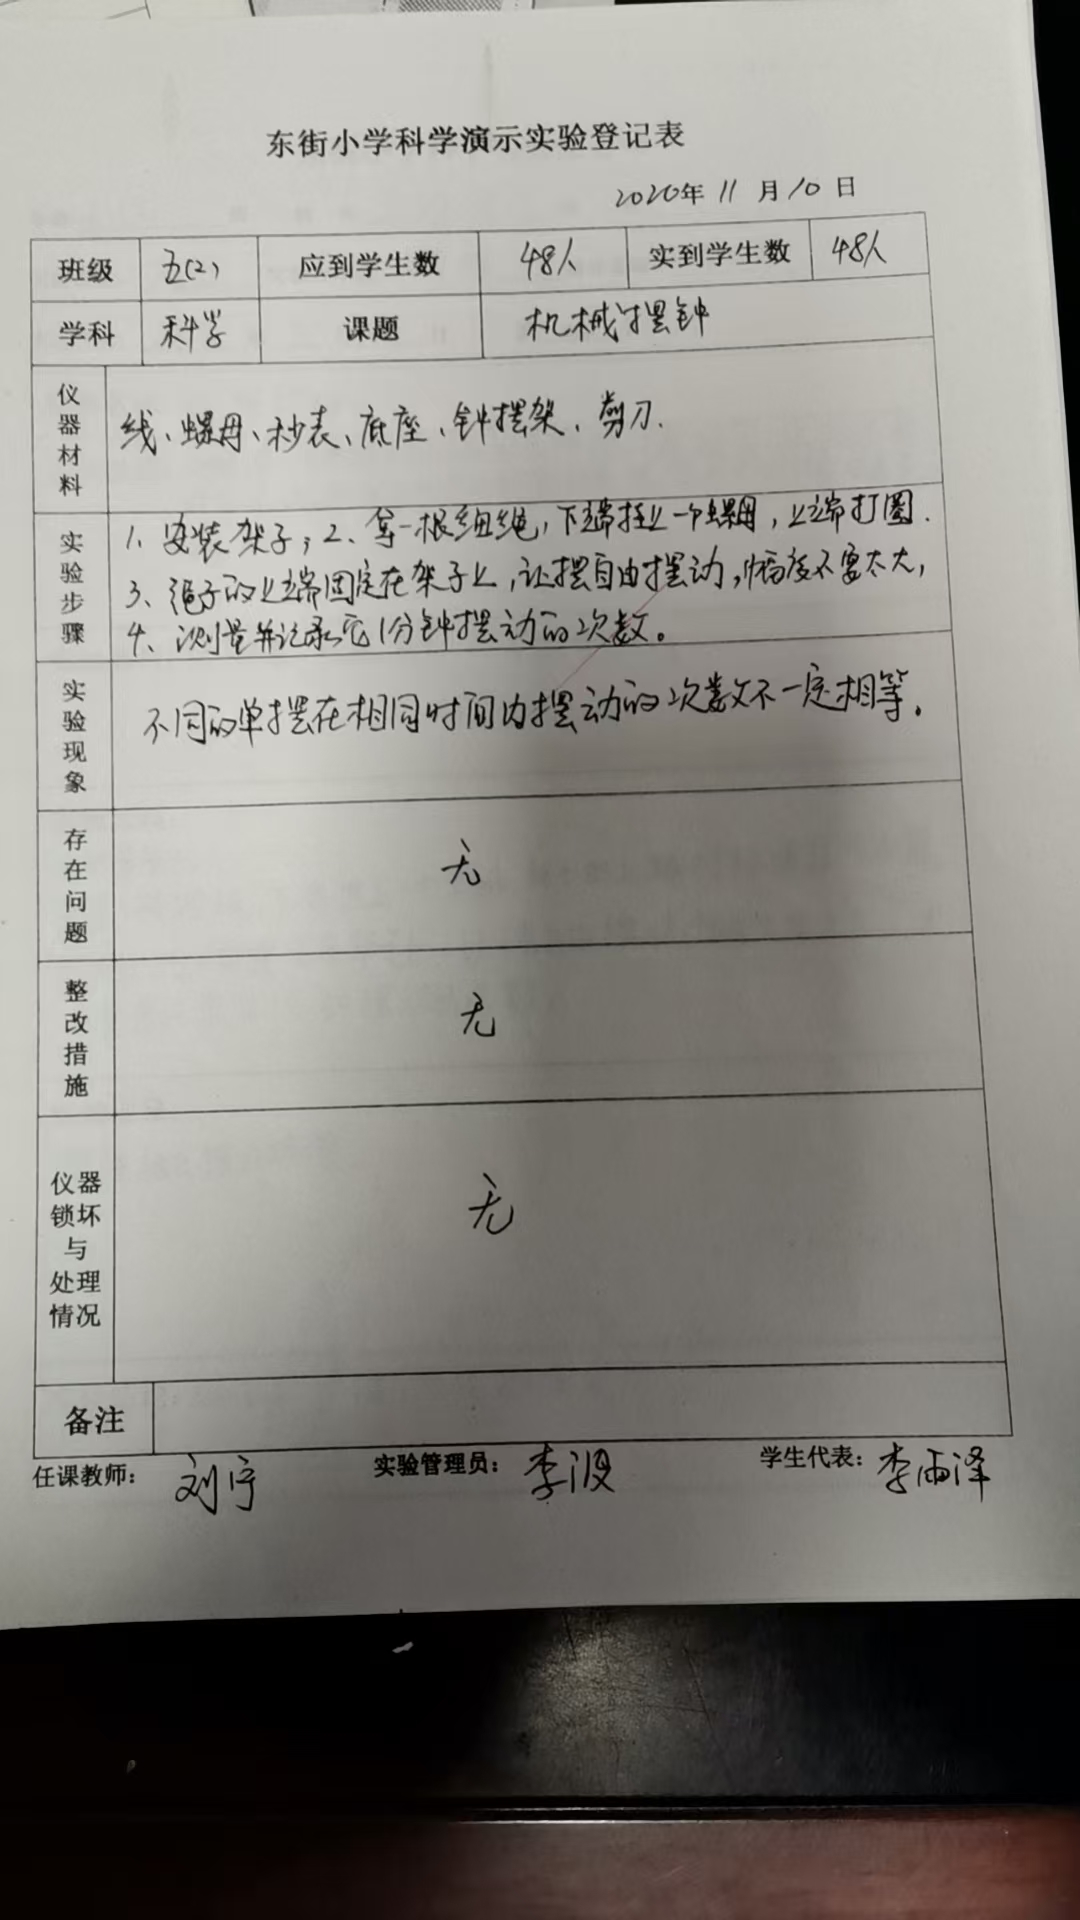 东街小学科学演示实验登记表
2020年 11 月 10 日
班级 五(2) 应到学生数 48人 实到学生数 48人
学科 科学 课题 机械摆钟
仪器材料 线、螺母、秒表、底座、钟摆架、剪刀.
实验步骤 1、安装架子；2、拿一根细绳，下端挂上一个螺母，上端打圈.
3、绳子的上端固定在架子上，让摆自由摆动，幅度不要太大，
4、测量并记录它1分钟摆动的次数。
实验现象 不同的单摆在相同时间内摆动的次数不一定相等。
存在问题 无
整改措施 无
仪器锁坏与处理情况 无
备注
任课教师： 刘宁 实验管理员： 李波 学生代表： 李雨泽